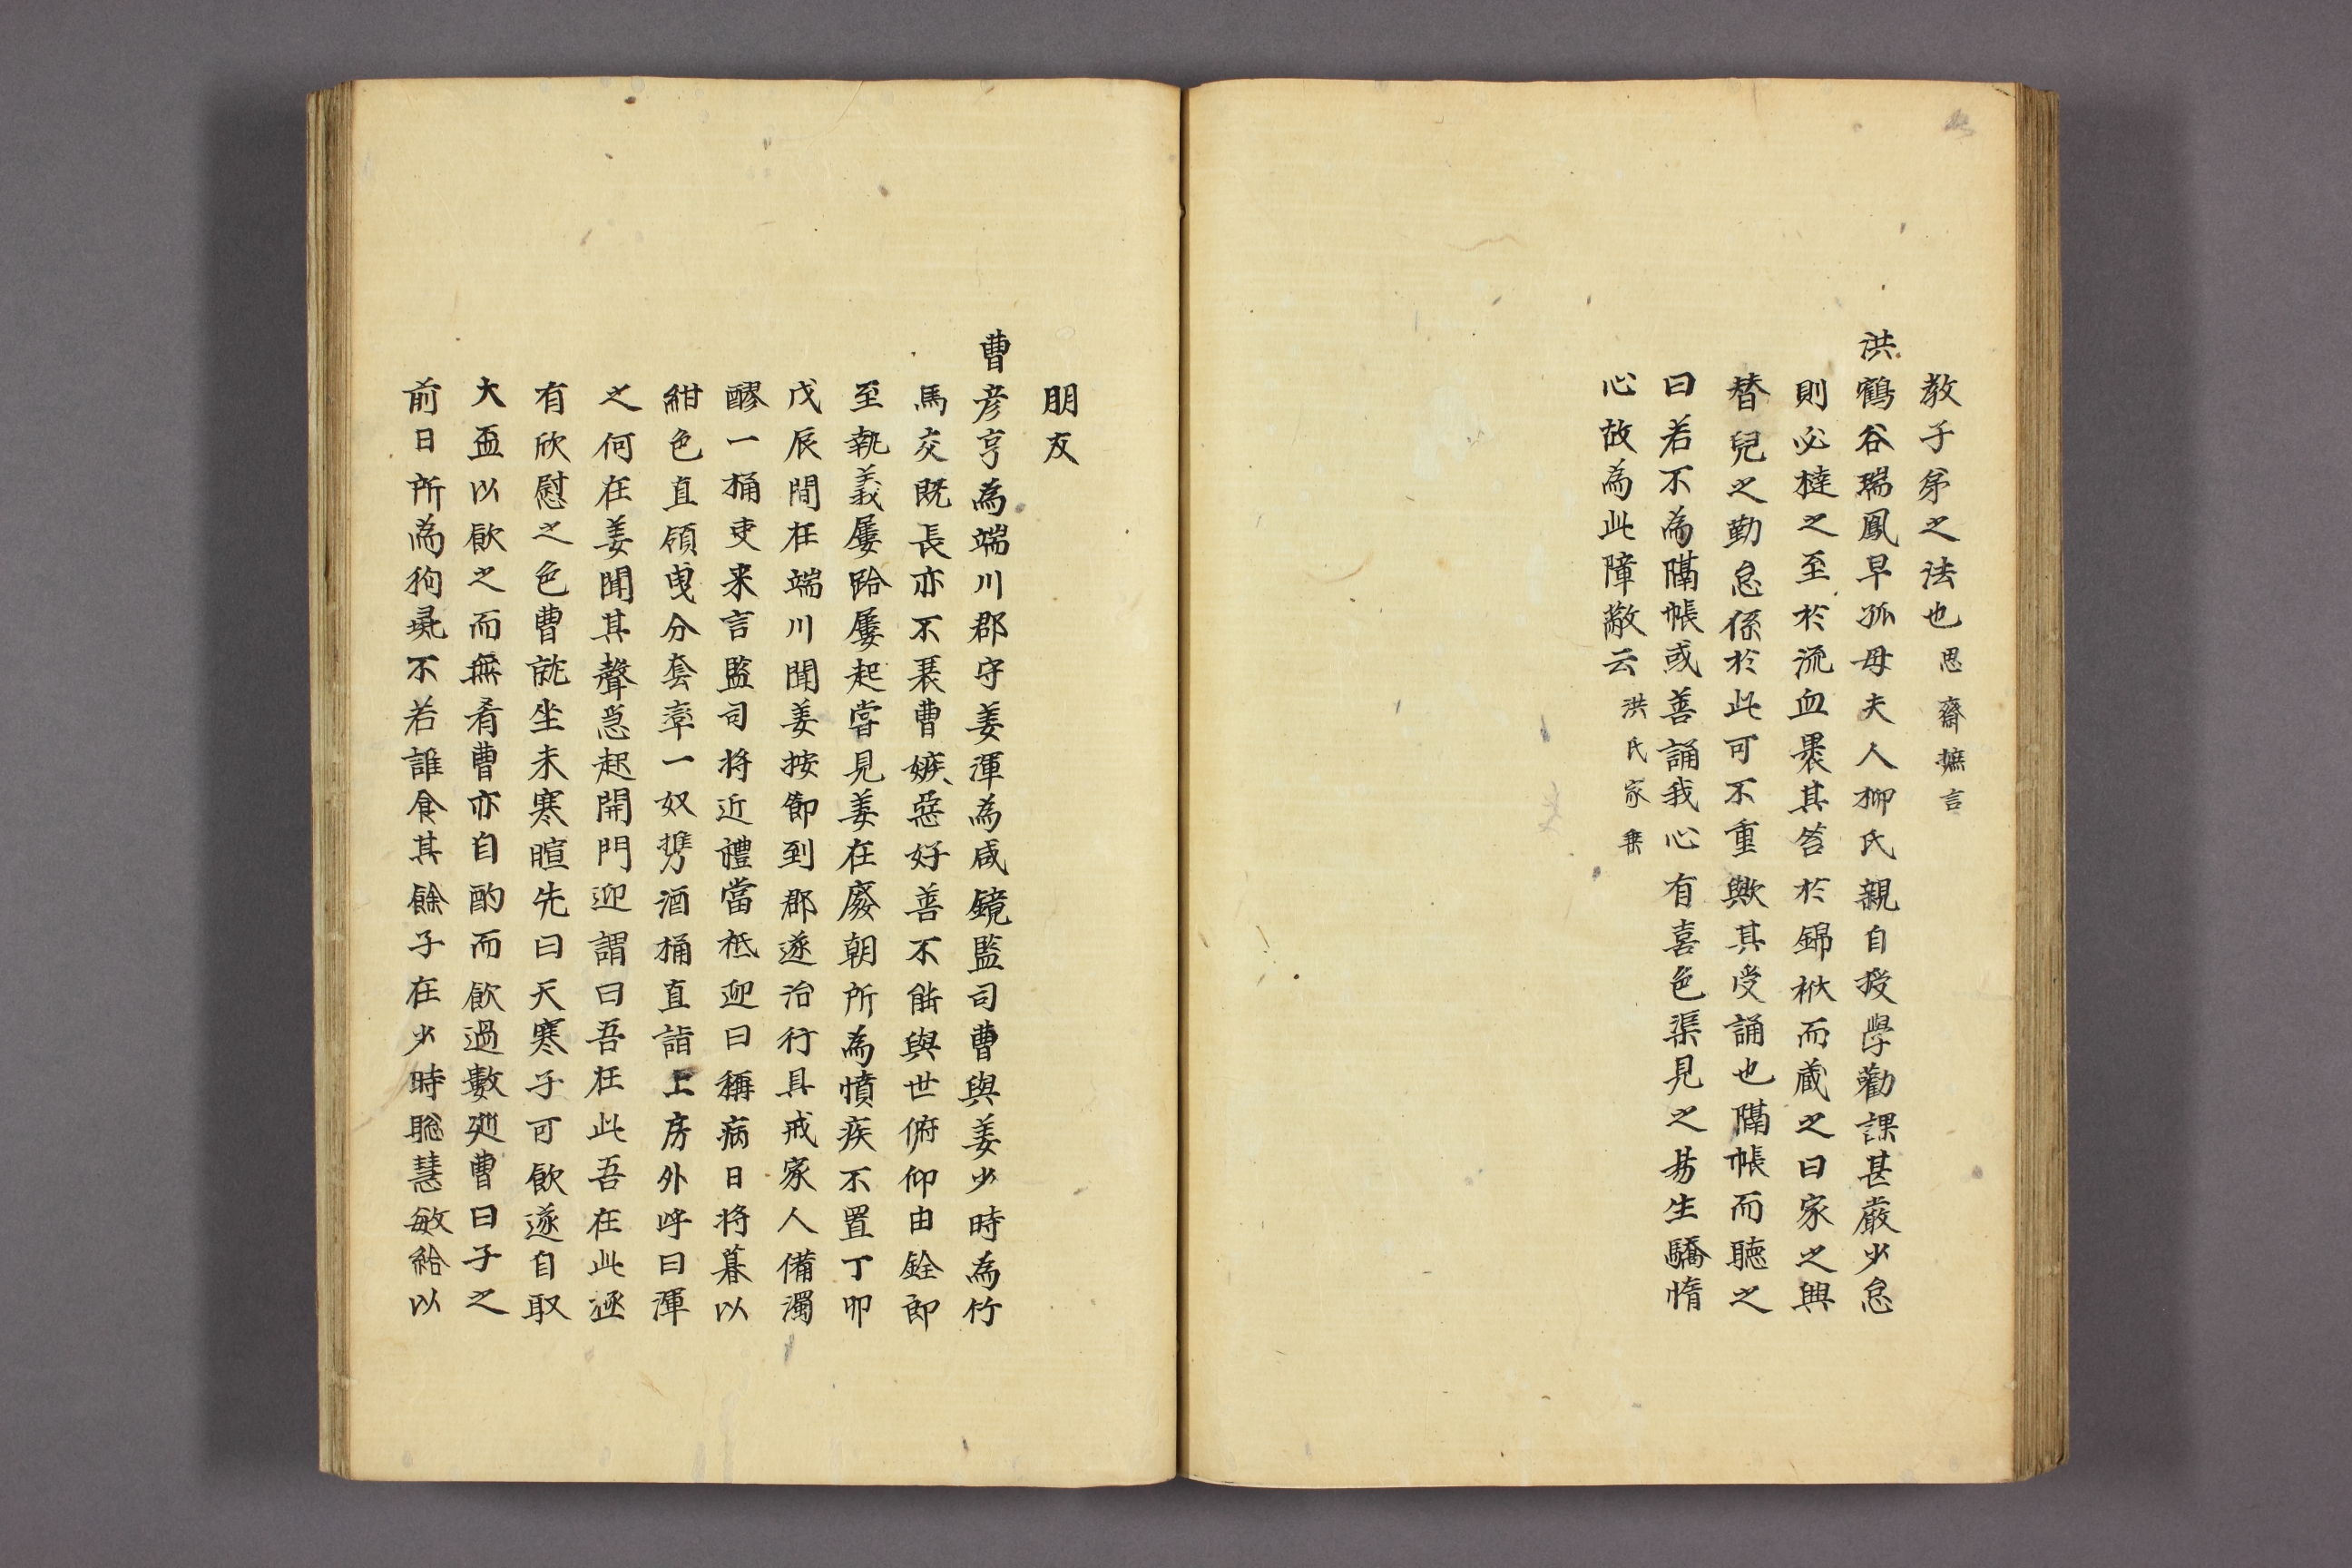 教子弟之法也思齋摭言
洪鶴谷瑞鳳早孤母夫人柳氏親自授學勸課甚嚴少怠
則必撻之至於流血裹其笞於錦袱而藏之曰家之興
替兒之勤怠係於此可不重歟其受誦也隔帳而聽之
曰若不為隔帳或善誦我心有喜色渠見之易生驕惰
心故為此障蔽云洪氏家乗
朋友
曹彦亨為端川郡守姜渾為咸鏡監司曹與姜少時為竹
馬交既長亦不衰曹嫉惡好善不能與世俯仰由銓郎
至執義屢跲屢起甞見姜在廢朝所為憤疾不置丁卯
戊辰間在端川聞姜按節到郡遂治行具戒家人備濁
醪一桶吏来言監司将近禮當祗迎曰稱病日将暮以
紺色直領曳分套率一奴携酒桶直詣上房外呼曰渾
之何在姜聞其聲急起開門迎謂曰吾在此吾在此逐
有欣慰之色曹就坐未寒暄先曰天寒子可飲遂自取
大盃以飲之而無肴曹亦自酌而飲過數廵曹曰子之
前日所為狗彘不若誰食其餘子在少時聡慧敏給以